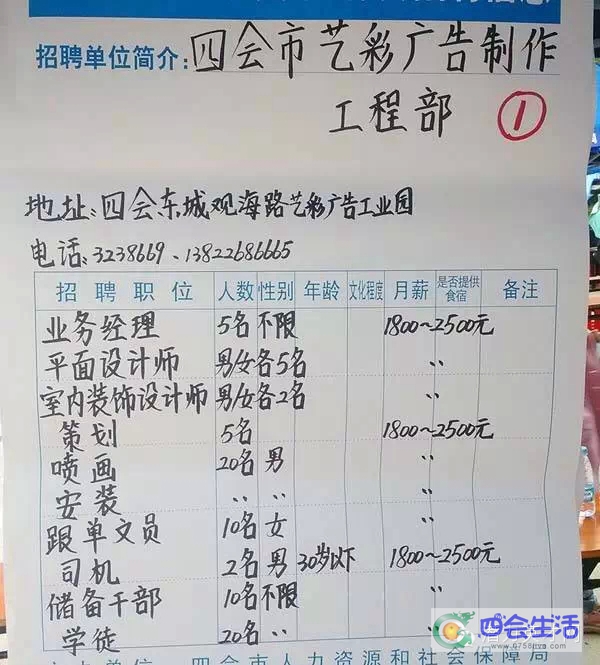 招聘单位简介:四会市艺彩广告制作
工程部 ①
地址:四会东城观海路艺彩广告工业园
电话:3238669、13822686665
招聘职位 人数 性别 年龄 文化程度 月薪 是否提供食宿 备注
业务经理 5名 不限 1800~2500元
平面设计师 男/女各5名 〃
室内装饰设计师 男/女各2名 〃
策划 5名 1800~2500元
喷画 20名 男 〃
安装 〃 〃 〃
跟单文员 10名 女 〃
司机 2名 男 30岁以下 1800~2500元
储备干部 10名 不限 〃
学徒 20名 〃 〃
四会市人力资源和社会保障局
四会生活
www.0758jiva.com